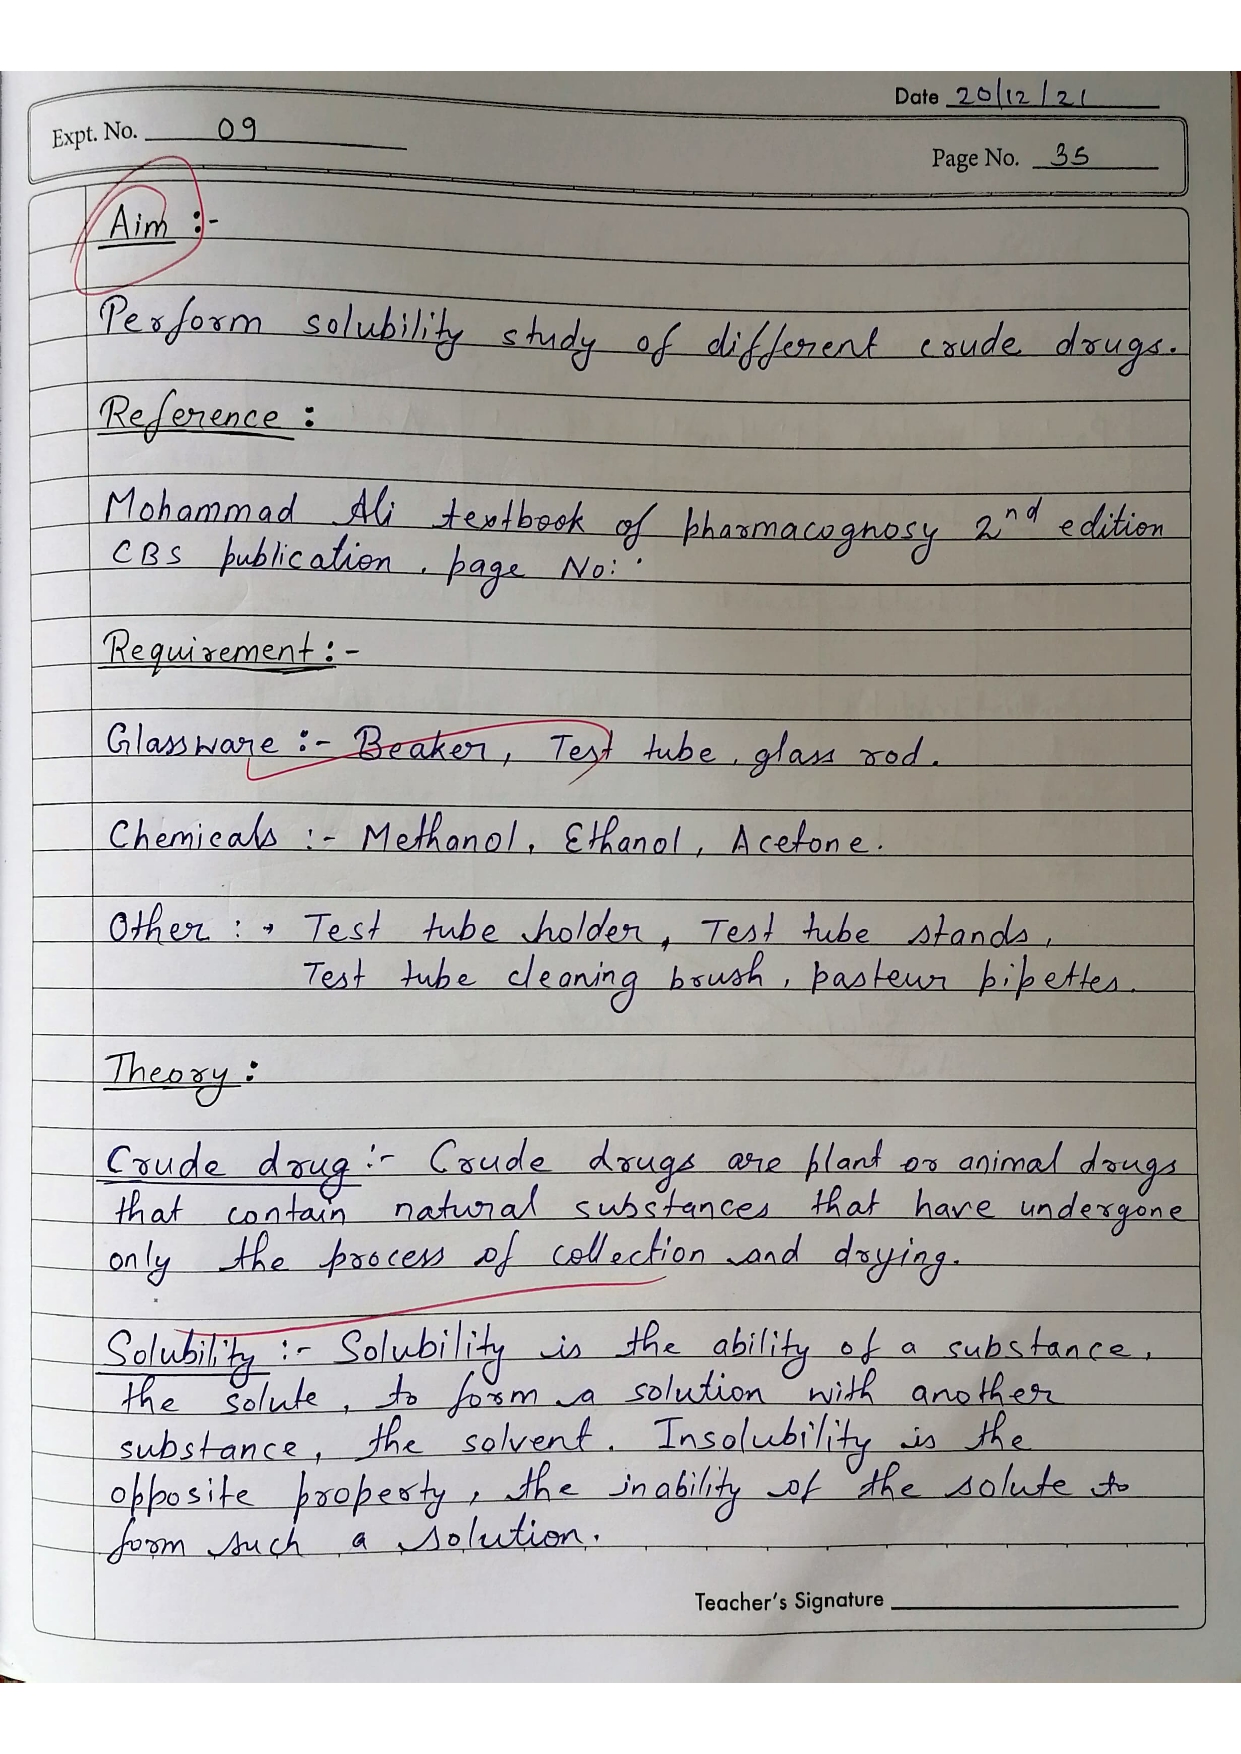 Date 20/12/21
Expt. No. 09
Page No. 35
Aim :-
Perform solubility study of different crude drugs.
Reference :
Mohammad Ali textbook of pharmacognosy 2nd edition
CBS publication. page No:
Requirement :-
Glassware :- Beaker, Test tube, glass rod.
Chemicals :- Methanol, Ethanol, Acetone.
Other : → Test tube holder, Test tube stands,
Test tube cleaning brush, pasteur pipettes.
Theory :
Crude drug :- Crude drugs are plant or animal drugs
that contain natural substances that have undergone
only the process of collection and drying.
Solubility :- Solubility is the ability of a substance,
the solute, to form a solution with another
substance, the solvent. Insolubility is the
opposite property, the inability of the solute to
form such a solution.
Teacher's Signature